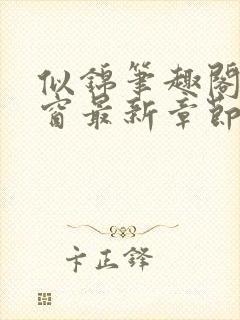 似锦笔趣阁
窗最新章节
卞正锋